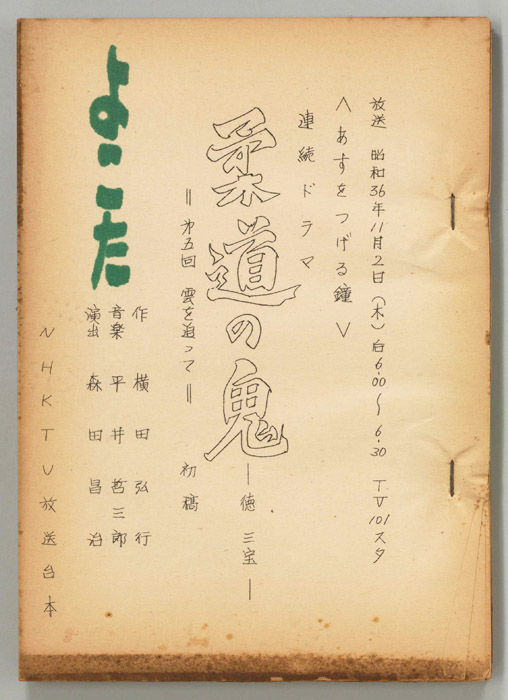 放送 昭和36年11月2日(木)后6.00〜6.30 TV101スタ
<あすをつげる鐘>
連続ドラマ
柔道の鬼
―徳三宝―
＝第五回 雲を追って＝ 初稿
作 横田弘行
音楽 平井哲三郎
演出 森田昌治
NHKTV放送台本